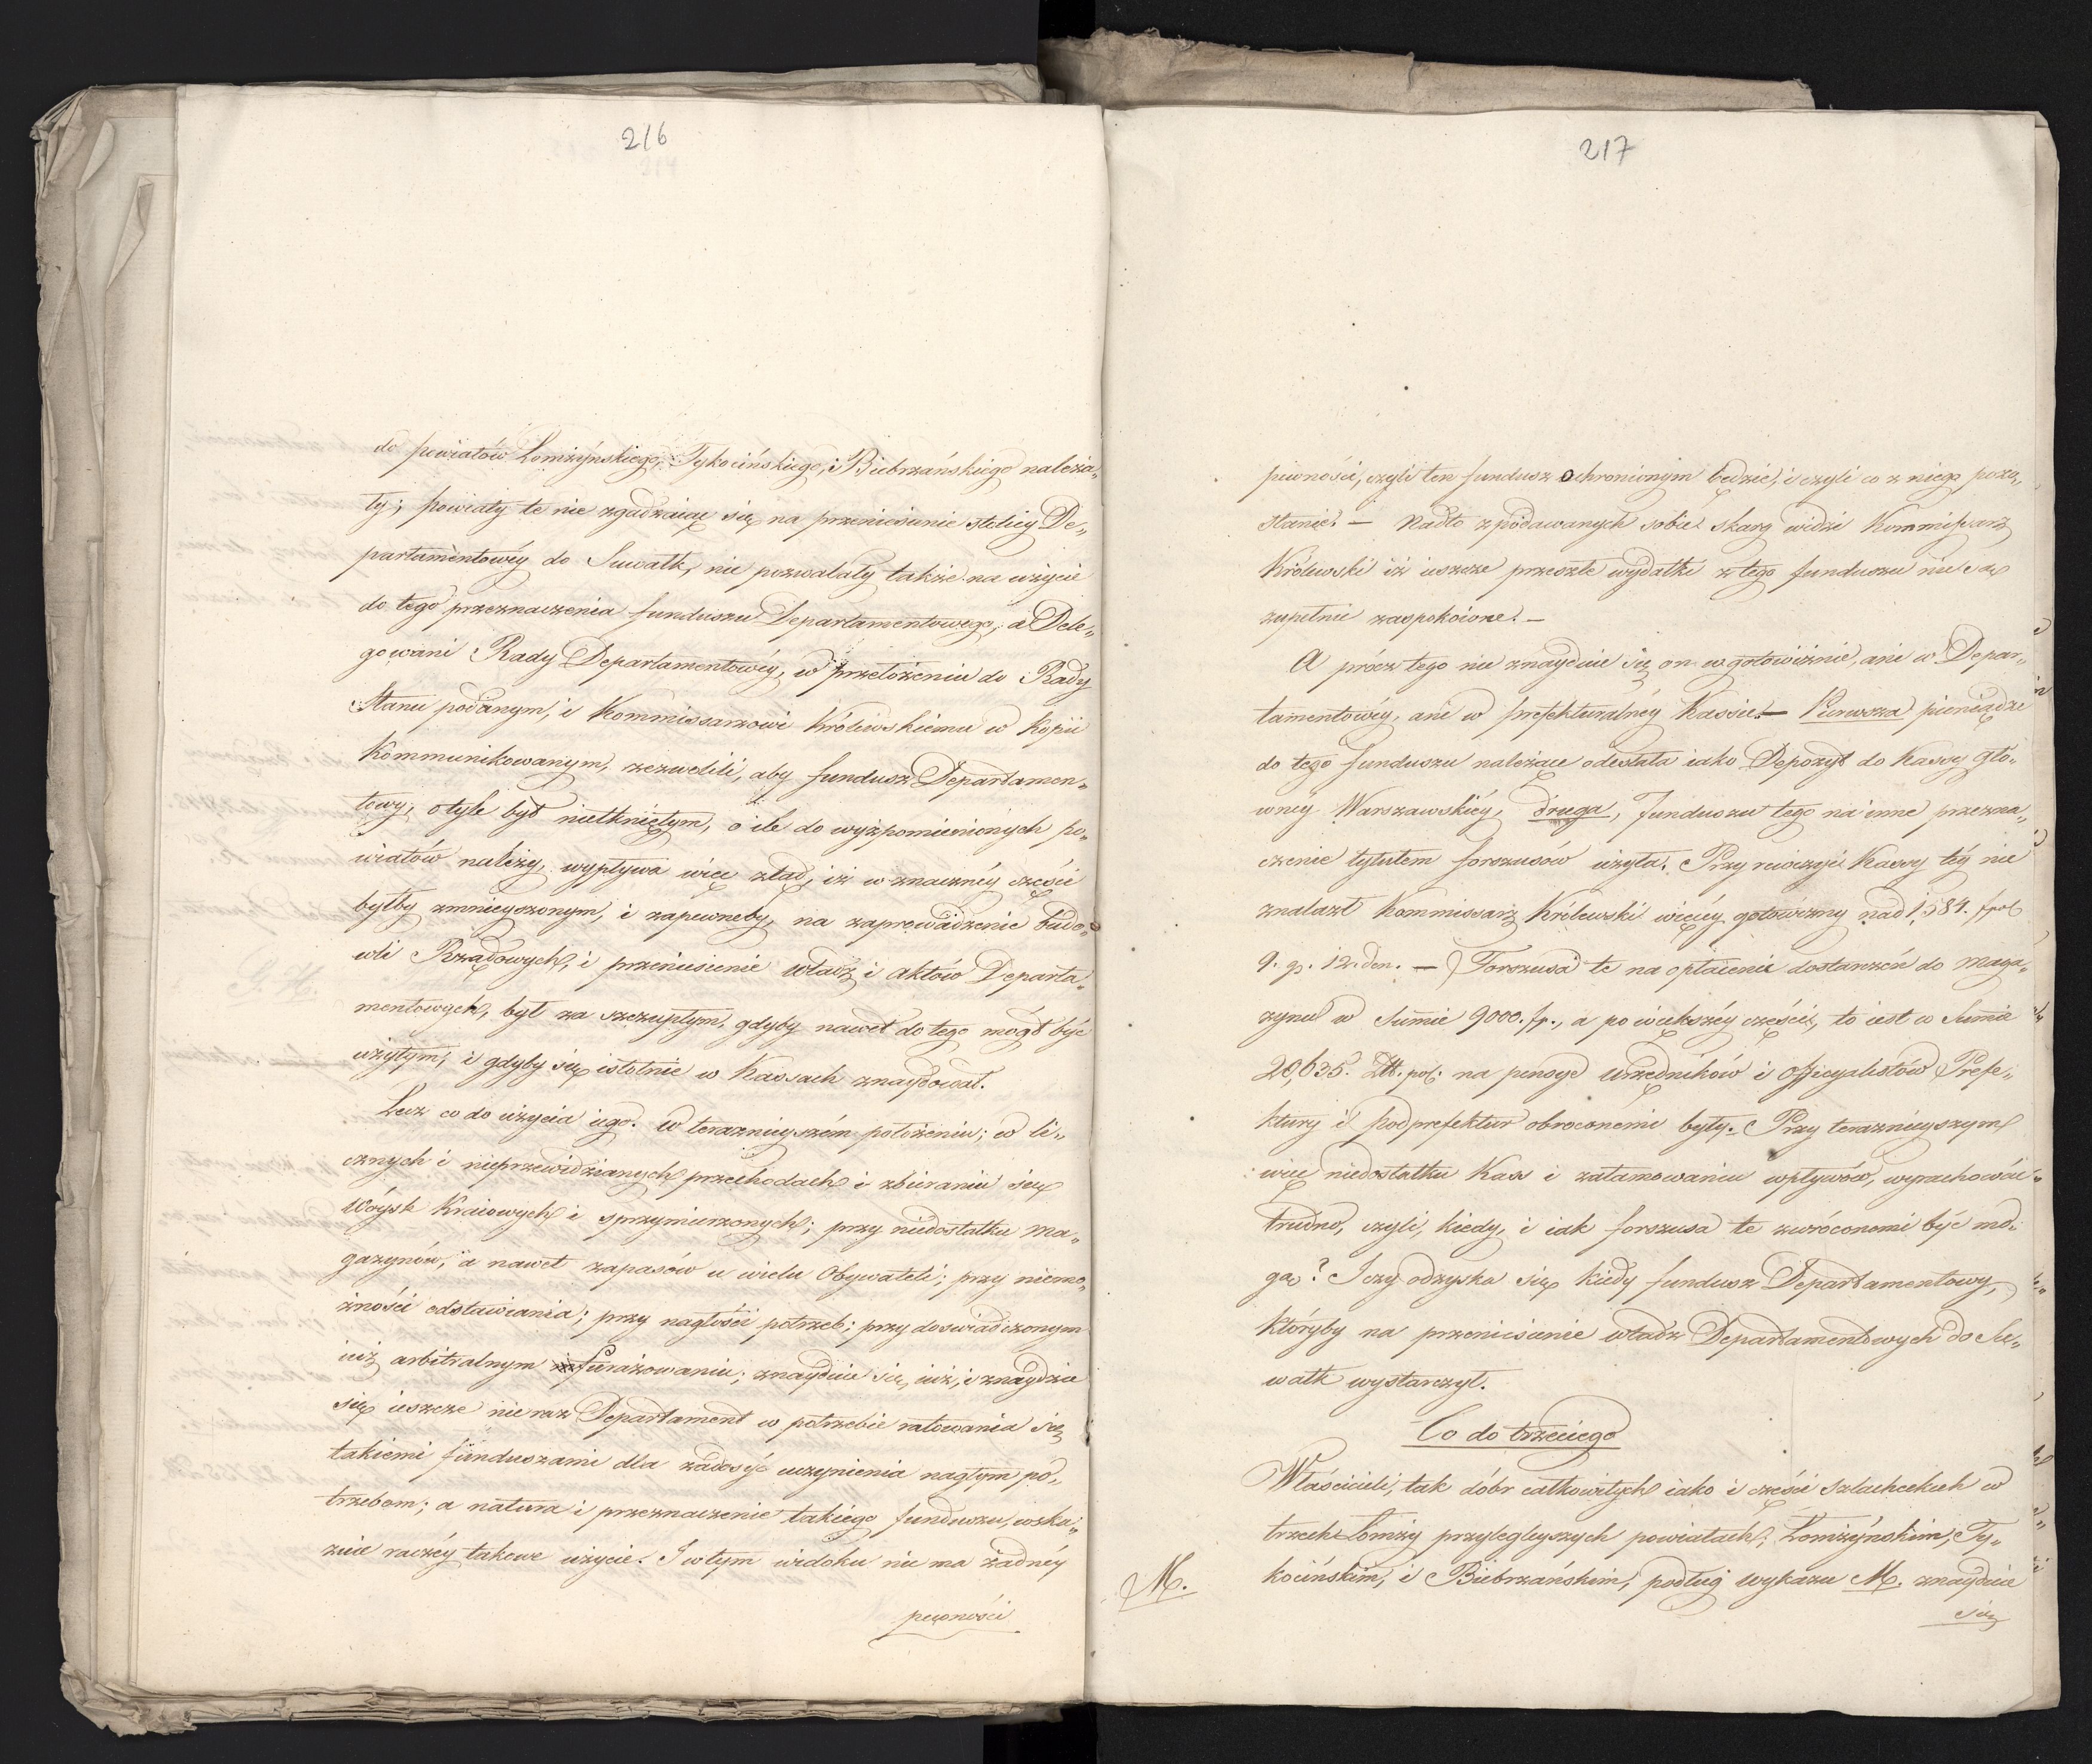 216
do powiatów Łomżyńskiego, Tykocińskiego, i Biebrzańskiego należa„
ły; powiaty te nie zgadzaiąc się na przeniesienie stolicy De„
partamentowéy do Suwałk, nie pozwalały także na użycie
do tego przeznaczenia funduszu Departamentowego; a Dele„
gowani Rady Departamentowéy, w przełożeniu do Rady
Stanu podanym, i Kommissarzowi Królewskiemu w Kopii
Kommunikowanym, zezwolili, aby fundusz Departamen„
towy, o tyle był nietkniętym, o ile do wyżpomienionych po„
wiatów należy, wypływa więc ztąd, iż w znacznéy części
byłby zmnieyszonym, i zapewneby, na zaprowadzenie budo„
wli Rządowych, i przeniesienie władz i aktów Departa„
mentowych, był za szczupłym, gdyby nawet do tego mógł być
użytym, i gdyby się istotnie w Kassach znaydował.
Lecz co do użycia iego. w teraznieyszém położeniu; w li„
cznych i nieprzewidzianych przechodach i zbieraniu się
Wóysk Kraiowych i sprzymierzonych; przy niedostatku ma„
gazynów, a nawet zapasów u wielu Obywateli; przy niemo„
żności odstawiania; przy nagłości potrzeb; przy doswiadczonym
iuż arbitralnym furażowaniu; znayduie się iuż, i znaydzie
się ieszcze nie raz Departament w potrzebie ratowania się
takiemi funduszami dla zadosyć uczynienia nagłym po„
trzebom; a natura i przeznaczenie takiego funduszu, wska„
zuie raczéy takowe użycie. I w tym widoku nie ma żadnéy
pewności
217
pewności, czyli ten fundusz ochronionym będzie, i czyli co z niego poza„
stanie. — Nadto z podawanych sobie skarg widzi Kommissarz
Królewski iż ieszcze przeszłe wydatki z tego funduszu nie są
zupełnie zaspokoione. —
A prócz tego nie znayduie się on w gotowiźnie, ani w Depar„
tamentowéy, ani w prefekturalnéy Kassie. — Pierwsza pieniądze
do tego funduszu należące odesłała iako Depozyt do Kassy głó„
wnéy Warszawskiéy, druga, funduszu tego na inne przezna„
czenie tytułem forszusów użyła. Przy rewizyi Kassy téy nie
znalazł Kommissarz Królewski więcéy gotowizny nad 1,584. fpol
9. gr. 12. den. — Forszusa te na opłacenie dostarczeń do maga„
zynu w Summie 9000. fp., a po większéy części, to iest w Summie
20,635. Zł. pol. na pensye urzędników i officyalistów Prefe„
ktury i podprefektur obroconemi były. Przy teraznieyszym
więc niedostatku Kass i zatamowaniu wpływów, wyrachować
trudno, czyli, kiedy, i iak forszusa te zwróconemi być mo„
gą? I czy odzyska się kiedy fundusz Departamentowy,
któryby na przeniesienie władz Departamentowych do Su„
wałk wystarczył.
Co do trzeciego
Właścicieli, tak dóbr całkowitych iako i części szlacheckich w
trzech Łomży przyległeyszych powiatach; Łomżyńskim, Ty„
kocińskim, i Biebrzańskim, podług wykazu M. znayduie
M.
się